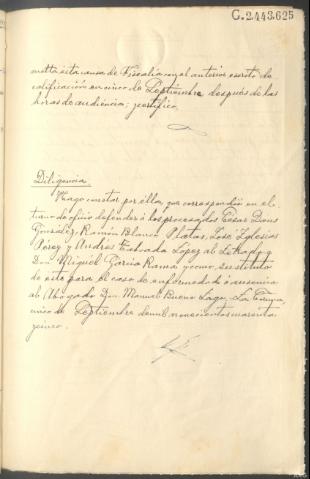 C.2.443.625
esta causa de Fiscalía con el anterior escrito de
calificación en cinco de Septiembre después de las
horas de audiencia; certifico.
Diligencia.
Hago constar por ella, que correspondió en el
turno de oficio defender a los procesados César
González, Ramón Blanco Platas, José Iglesias
Pérez y Andrés Estrada López al Letrado
Don Miguel García Rama y como sustituto
de este para el caso de enfermedad o ausencia
al Abogado Don Manuel Bueno Lago. La Coruña,
cinco de Septiembre de mil novecientos cuarenta
y cinco.